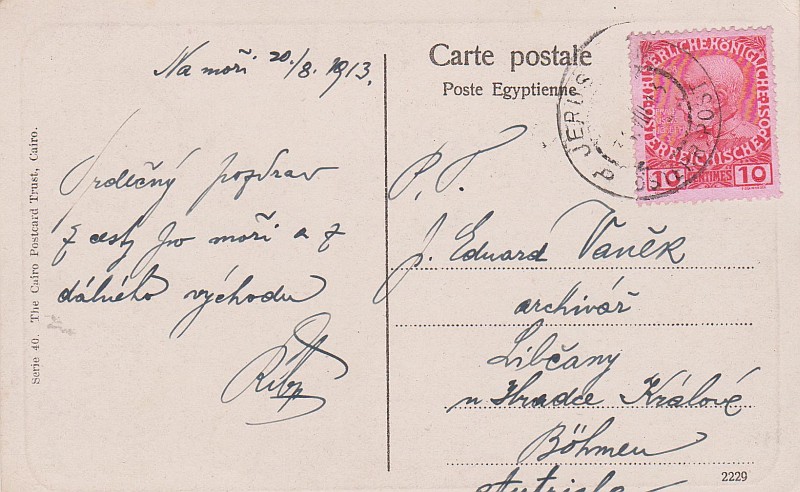 Na moři 20./8. 1913.
Srdečný pozdrav
z cesty po moři a z
dálného východu
Carte postale
Poste Egyptienne
P. T.
p. Eduard Vaněk
archivář
Libčany
u Hradce Králové
Böhmen
Austria
Serie 40. The Cairo Postcard Trust, Cairo.
2229
10 CENTIMES 10
JERUS